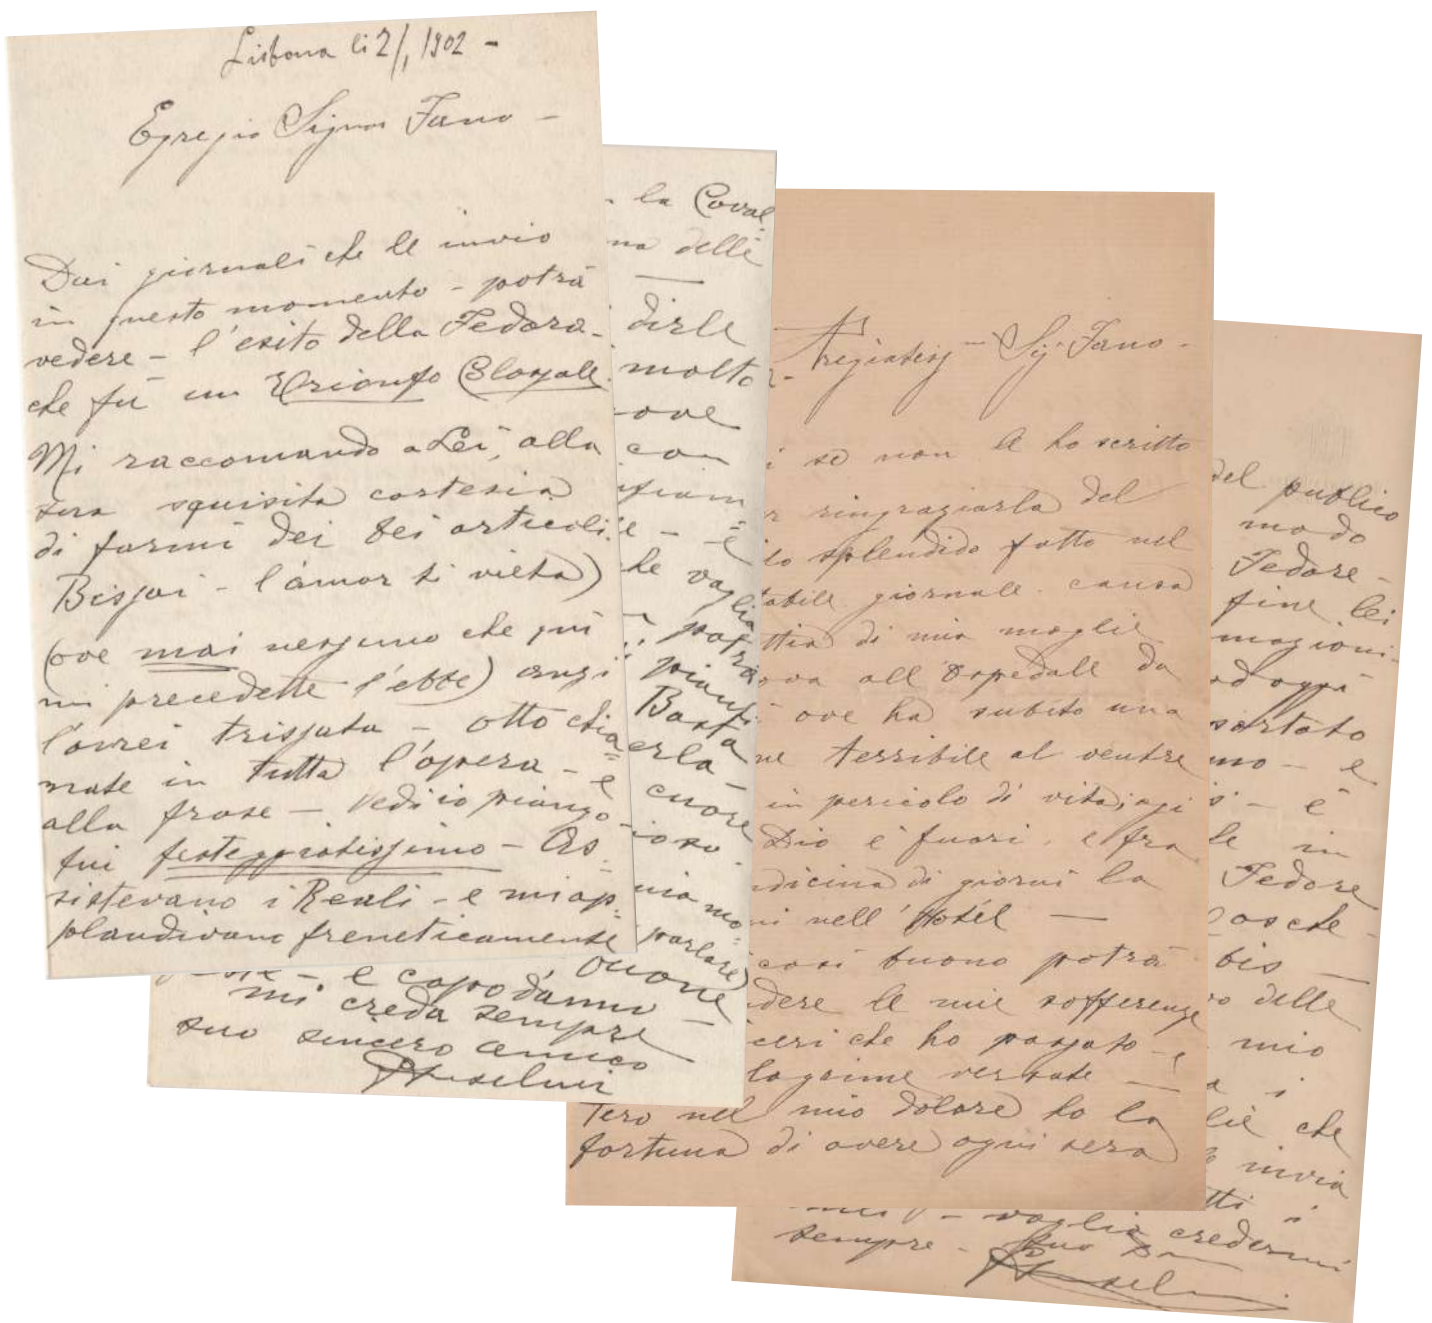 Lisbona li 2/1 1902 -
Egregio Signor Fano -
Dai giornali che le invio
in questo momento - potrà
vedere - l'esito della Fedora -
che fù un Trionfo Colossale.
Mi raccomando a Lei, alla
sua squisita cortesia
di farmi dei bei articoli.
Bissai - l'amor ti vieta)
(ove mai nessuno che quì
mi precedette l'ebbe) anzi
l'avrei trissata - otto chia=
mate in tutta l'opera - e
alla frase - vedi io piango -
fui festeggiatissimo - As=
sistevano i Reali - e mi ap=
plaudivano freneticamente
la Caval=
na delle
dirle
molto
ove
con
e - è
he voglia
potrà
pianti
Basta
erla
cuore
ioso.
mia mo=
parlare)
buone
- e capo d'anno -
mi creda sempre
suo sincero amico
GAnselmi
Pregiatissi Sig. Fano -
i se non le ho scritto
r ringraziarla del
lo splendido fatto nel
tabile giornale. causa
ttia di mia moglie
ova all'ospedale da
i ove ha subito una
ne terribile al ventre
in pericolo di vita; oggi
Dio è fuori. e fra
ndicina di giorni la
ni nell'Hotél —
così buono potrà
dere le mie sofferenze
ceri che ho passato - e
lagrime versate —
tero nel mio dolore ho la
fortuna di avere ogni sera
del publico
modo
Fedore -
fine lei
magioni -
ad oggi
sortato
mo - e
i - è
le in
Fedore
Tosche -
bis —
ro delle
mio
a i
lie che
le invia
tti i
miei - voglia credermi
sempre - suo
GAnselmi